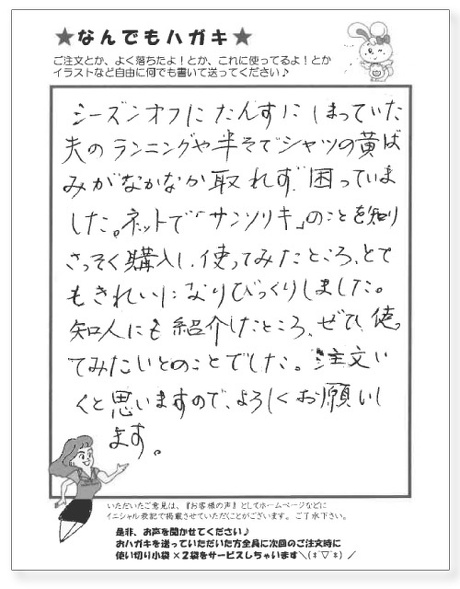 ★なんでもハガキ★
ご注文とか、よく落ちたよ！とか、これに使ってるよ！とか
イラストなど自由に何でも書いて送ってください♪
シーズンオフにたんすにしまっていた
夫のランニングや半そでシャツの黄ば
みがなかなか取れず困っていま
した。ネットで「サンソリキ」のことを知り
さっそく購入し、使ってみたところ、とて
もきれいになりびっくりしました。
知人にも紹介したところ、ぜひ使っ
てみたいとのことでした。注文い
くと思いますので、よろしくお願いし
ます。
いただいたご意見は、『お客様の声』としてホームページなどに
イニシャル表記で掲載させていただくことがございます。ご了承下さい。
是非、お声を聞かせてください♪
おハガキを送っていただいた方全員に次回のご注文時に
使い切り小袋×2袋をサービスしちゃいます＼(*^▽^*)／